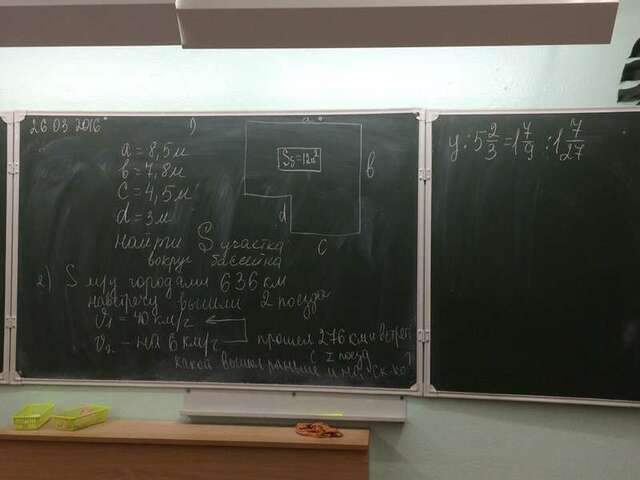 26.03.2016
1)
a = 8,5 м
в = 7,8 м
c = 4,5 м
d = 3 м
найти S участка
вокруг бассейна
a
в
Sб = 12 м²
d
c
2) S м/у городами 636 км
навстречу вышли 2 поезда
V₁ = 40 км/г
V₂ – на 6 км/г
прошел 276 км и встрет
с I поезд
какой вышел раньше и на ск-ко?
y : 5 2/3 = 1 7/9 : 1 7/27